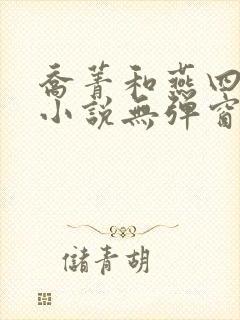 喬菁和燕四
小說無彈窗
儲青胡